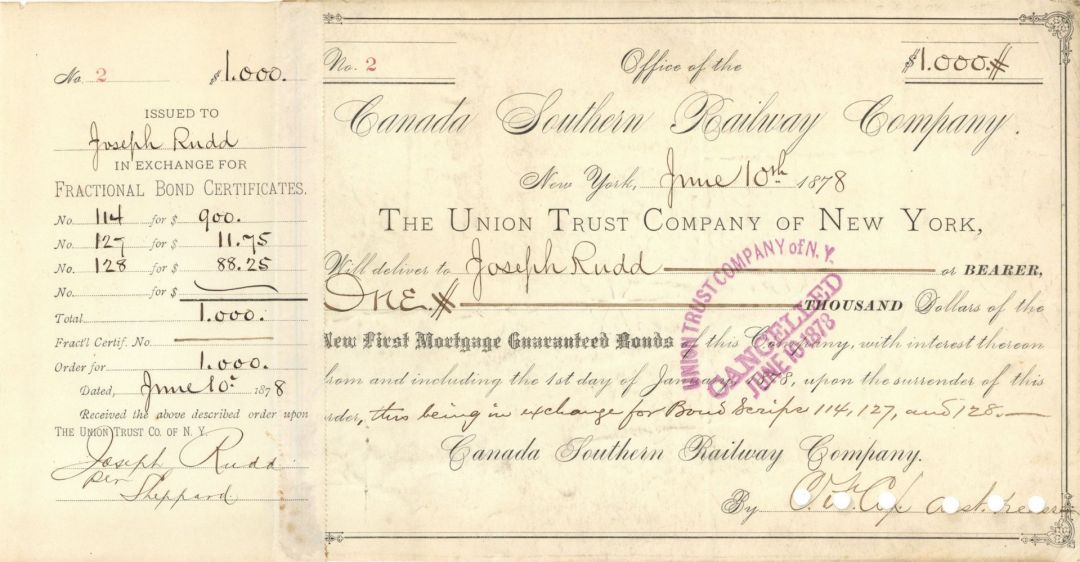 No. 2 $1.000.
ISSUED TO
Joseph Rudd
IN EXCHANGE FOR
FRACTIONAL BOND CERTIFICATES.
No. 114 for $ 900.
No. 127 for $ 11.75
No. 128 for $ 88.25
No. for $
Total 1.000.
Fract'l Certif. No.
Order for 1.000.
Dated, June 10th 1878
Received the above described order upon
THE UNION TRUST CO. OF N. Y.
Joseph Rudd
per
Sheppard.
No. 2 Office of the $1.000.#
Canada Southern Railway Company.
New York, June 10th 1878
THE UNION TRUST COMPANY OF NEW YORK,
Will deliver to Joseph Rudd or BEARER,
ONE # THOUSAND Dollars of the
New First Mortgage Guaranteed Bonds of this Company, with interest thereon
from and including the 1st day of January, 1878, upon the surrender of this
order, this being in exchange for Bond Scrips 114, 127, and 128.
Canada Southern Railway Company.
By
UNION TRUST COMPANY of N. Y.
CANCELLED
JUNE 10 1878